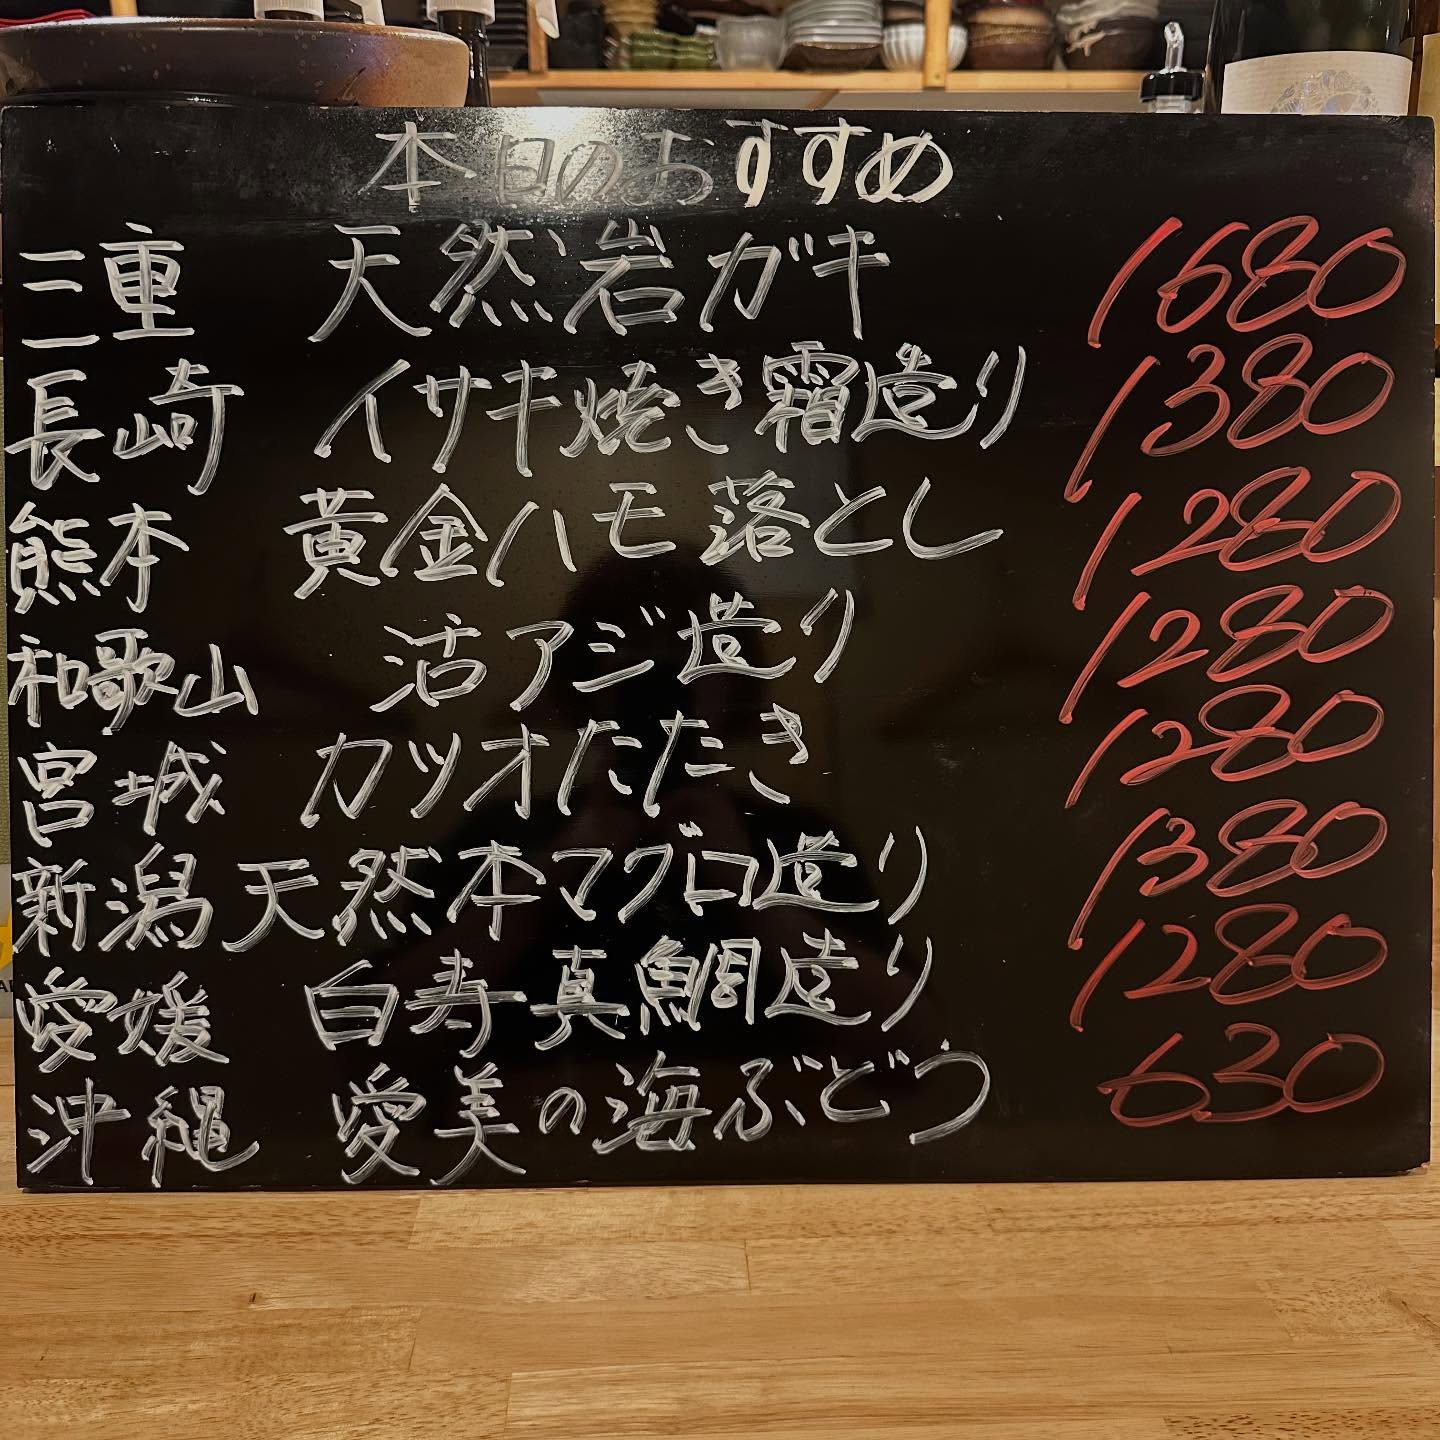 本日のおすすめ
三重 天然岩ガキ 1680
長崎 イサキ焼き霜造り 1380
熊本 黄金ハモ落とし 1280
和歌山 活アジ造り 1280
宮城 カツオたたき 1280
新潟 天然本マグロ造り 1380
愛媛 白寿真鯛造り 1280
沖縄 愛美の海ぶどう 630